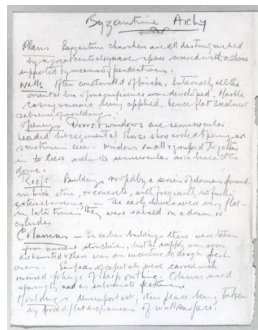 Byzantine Archy
Plans Byzantine churches are all distinguished
by a great central square space covered with a dome
supported by means of pendentives.
Walls Often constructed of brick. Internally all the
oriental love of magnificence was developed. Marble
casing & mosaic being applied, hence flat treatment
absence of mouldings.
Openings Doors & windows are semicircular
headed but segmental & horse shoe arched openings are
sometimes seen. Windows small & grouped together
in tiers within the semicircular arch beneath the
dome.
Roofs Building roofed by a series of domes formed
in brick stone, or concrete, with frequently no further
external covering. - The early domes were very flat -
in later times they were raised on a drum or
cylinder
Columns - In earlier buildings these were taken
from ancient structures, but the supply
exhausted there was an incentive to design fresh
ones. Surfaces of capitals were carved with
incised foliage of sharp outline. Columns used
sparingly and as subordinate features
Mouldings Unimportant, their place being taken
by broad flat expanses of wall surface.